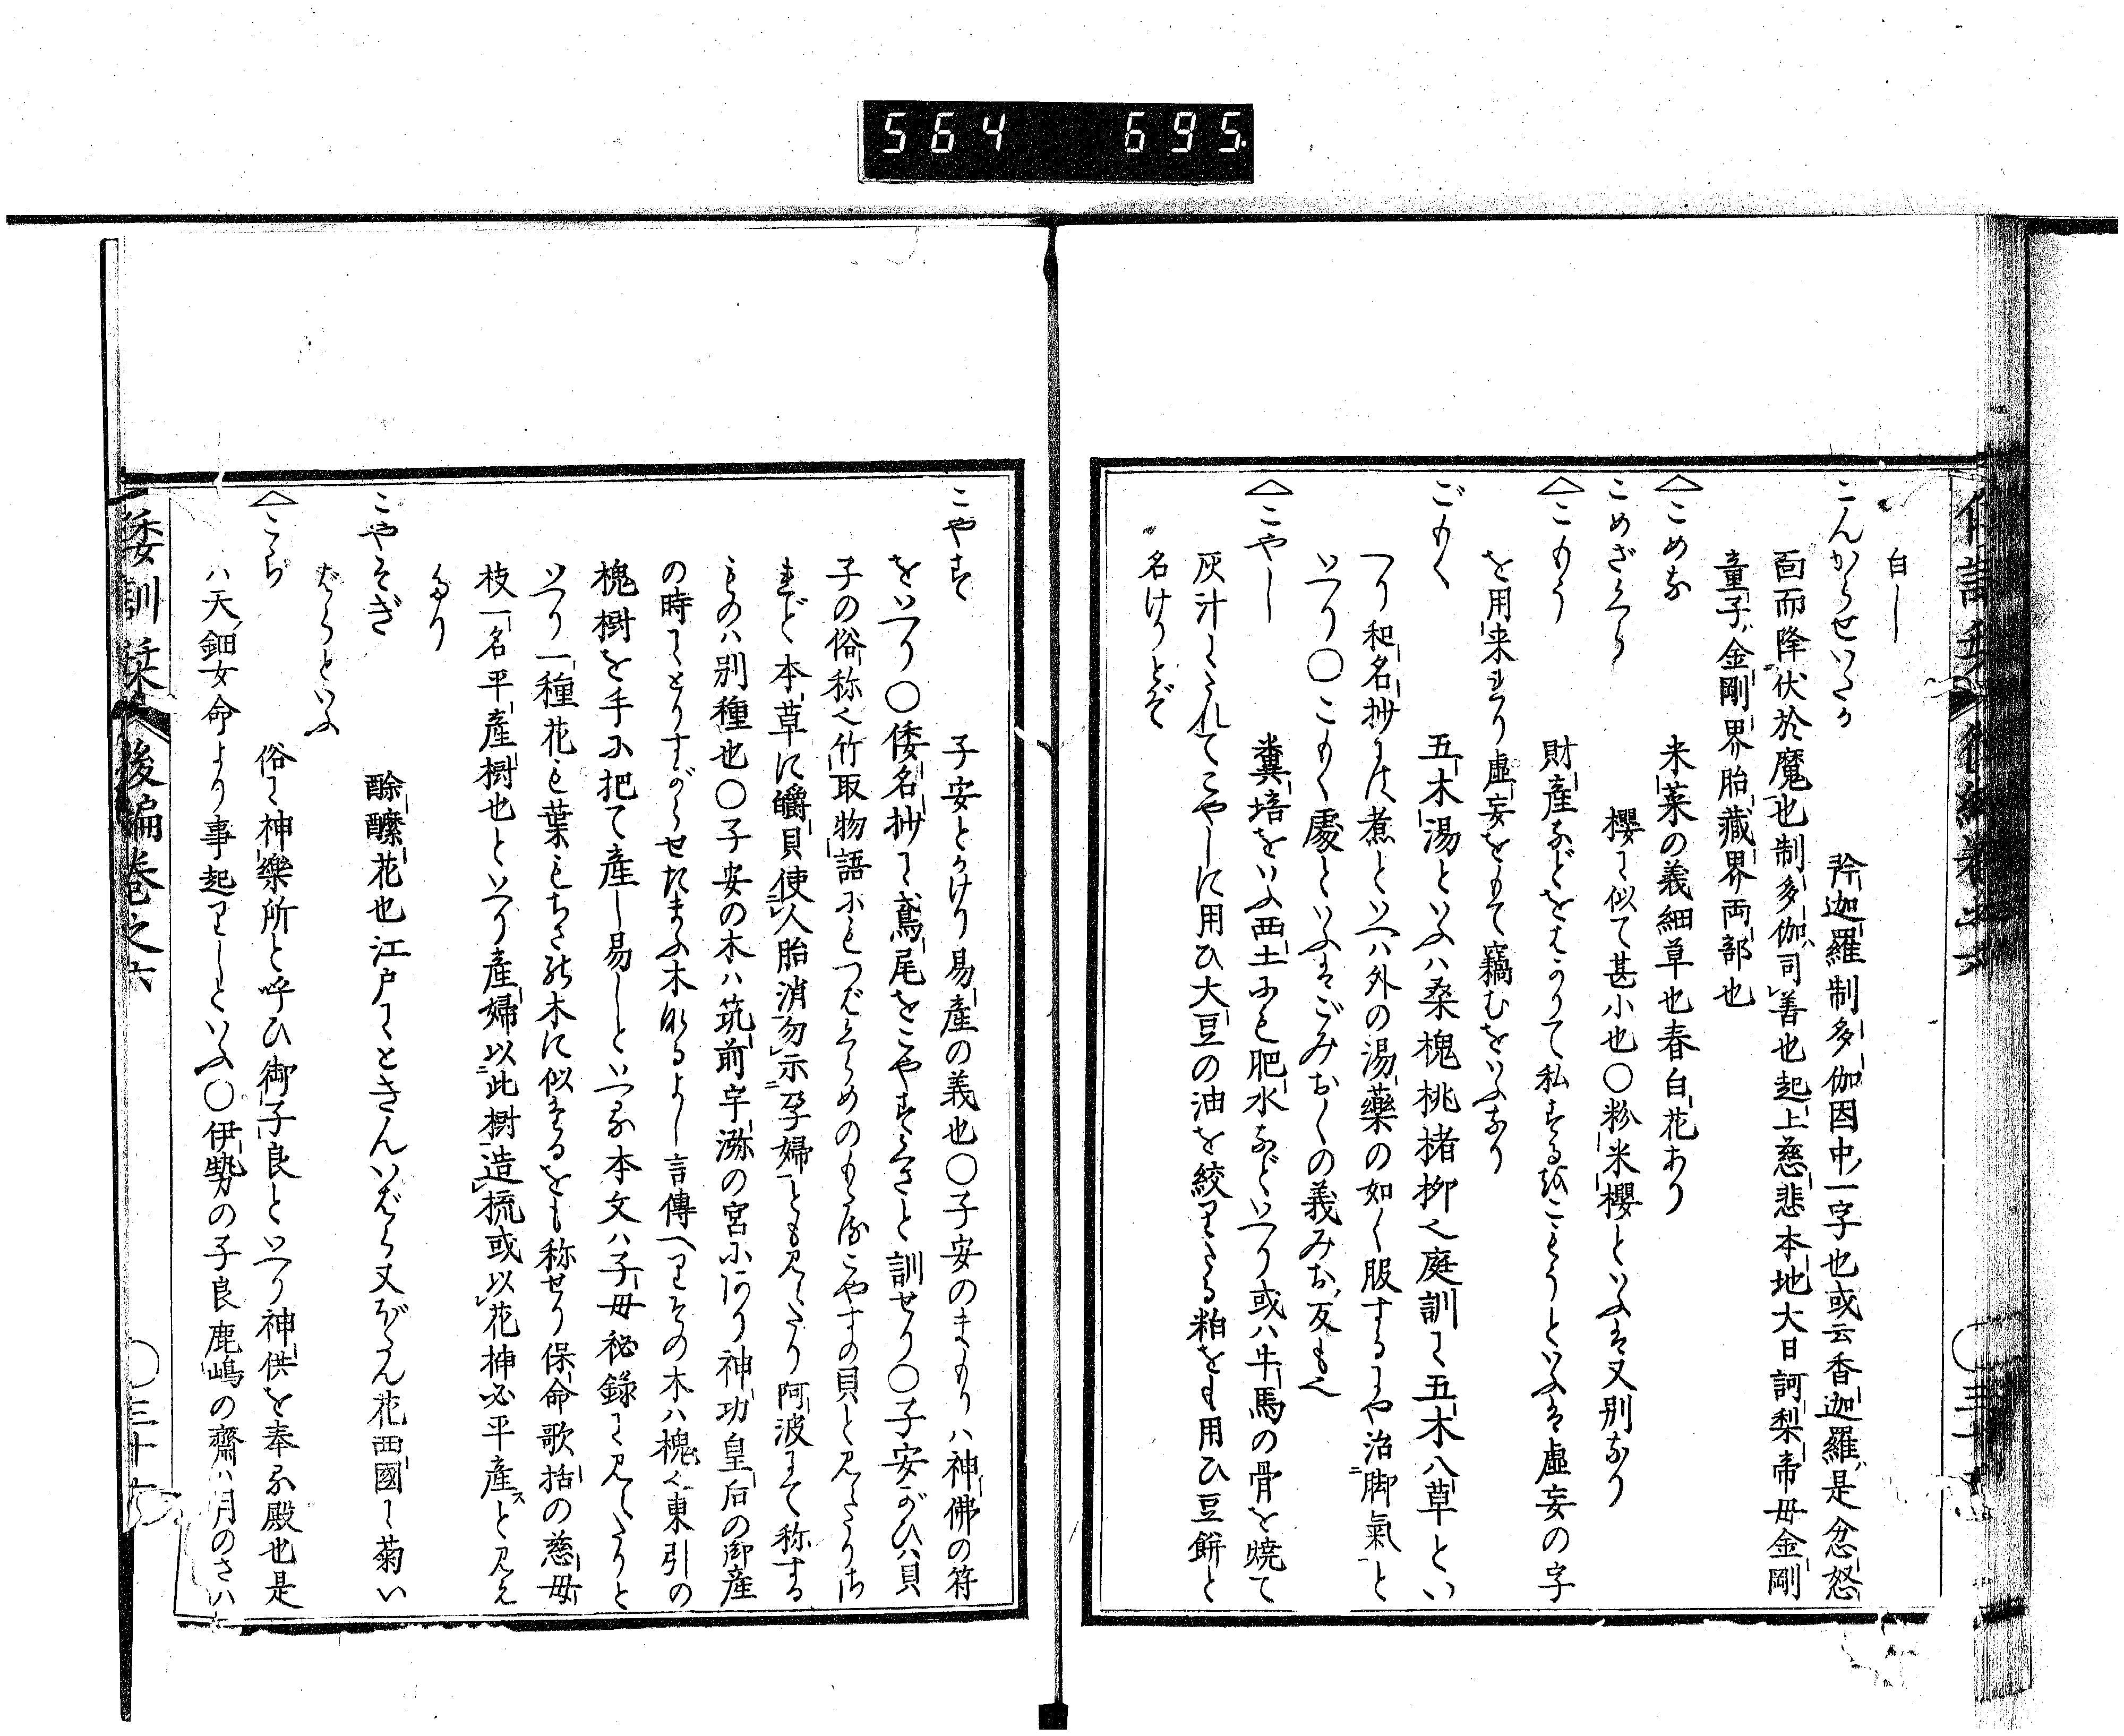 564 695
白し
こんからせいたか 羚迦羅制多伽因中一字也或云香迦羅是忿怒
面而降伏於魔也制多伽司善也起上慈悲本地大日訶梨帝母金剛
童子金剛界胎藏界両部也
△こめな 米菜の義細草也春白花あり
こめざくら 櫻に似て甚小也〇粉米櫻といふは又別なり
△こもう 財産などをはかりて私するをこもうといふは虚妄の字
を用来れり虚妄をもて竊むをいふなり
ごもく 五木湯といふハ桑槐桃楮柳也庭訓に五木八草とい
へり和名抄には煮といへハ外の湯藥の如く服するにや治脚氣と
いへり〇こもく處といふはごみおくの義みお反も也
△こやし 糞培をいふ西土にも肥水などいへり或ハ牛馬の骨を焼て
灰汁にたれてこやしに用ひ大豆の油を絞りたる粕をも用ひ豆餅と
名けりとぞ
こやす 子安とかけり易産の義也〇子安のまもりハ神佛の符
をいへり〇倭名抄に鳶尾をこやすくさと訓せり〇子安がひハ貝
子の俗称也竹取物語にもつばくらめのもたるこやすの貝と見えたりされ
ど本草に𪚩貝使人胎消勿示孕婦とも見えたり阿波にて称する
ものハ別種也〇子安の木ハ筑前宇瀰の宮にあり神功皇后の御産
の時にとりすがらせたまふ木なるよし言傳へりその木ハ槐也東引の
槐樹を手に把て産し易しといへる本文ハ子母秘録に見えたりと
いへり一種花も葉もちさの木に似たるをも称せり保命歌括の慈母
枝一名平産樹也といへり産婦以此樹造梳或以花挿必平産と見え
たり
こやそぎ 酴醿花也江戸にときんいばら又ぼたん花西國に菊い
ばらといふ
△こら 俗に神樂所と呼ひ御子良といへり神供を奉る殿也是
ハ天鈿女命より事起りしといふ〇伊勢の子良鹿嶋の齋ハ月のさハ
倭訓栞 後編巻之六 〇三十